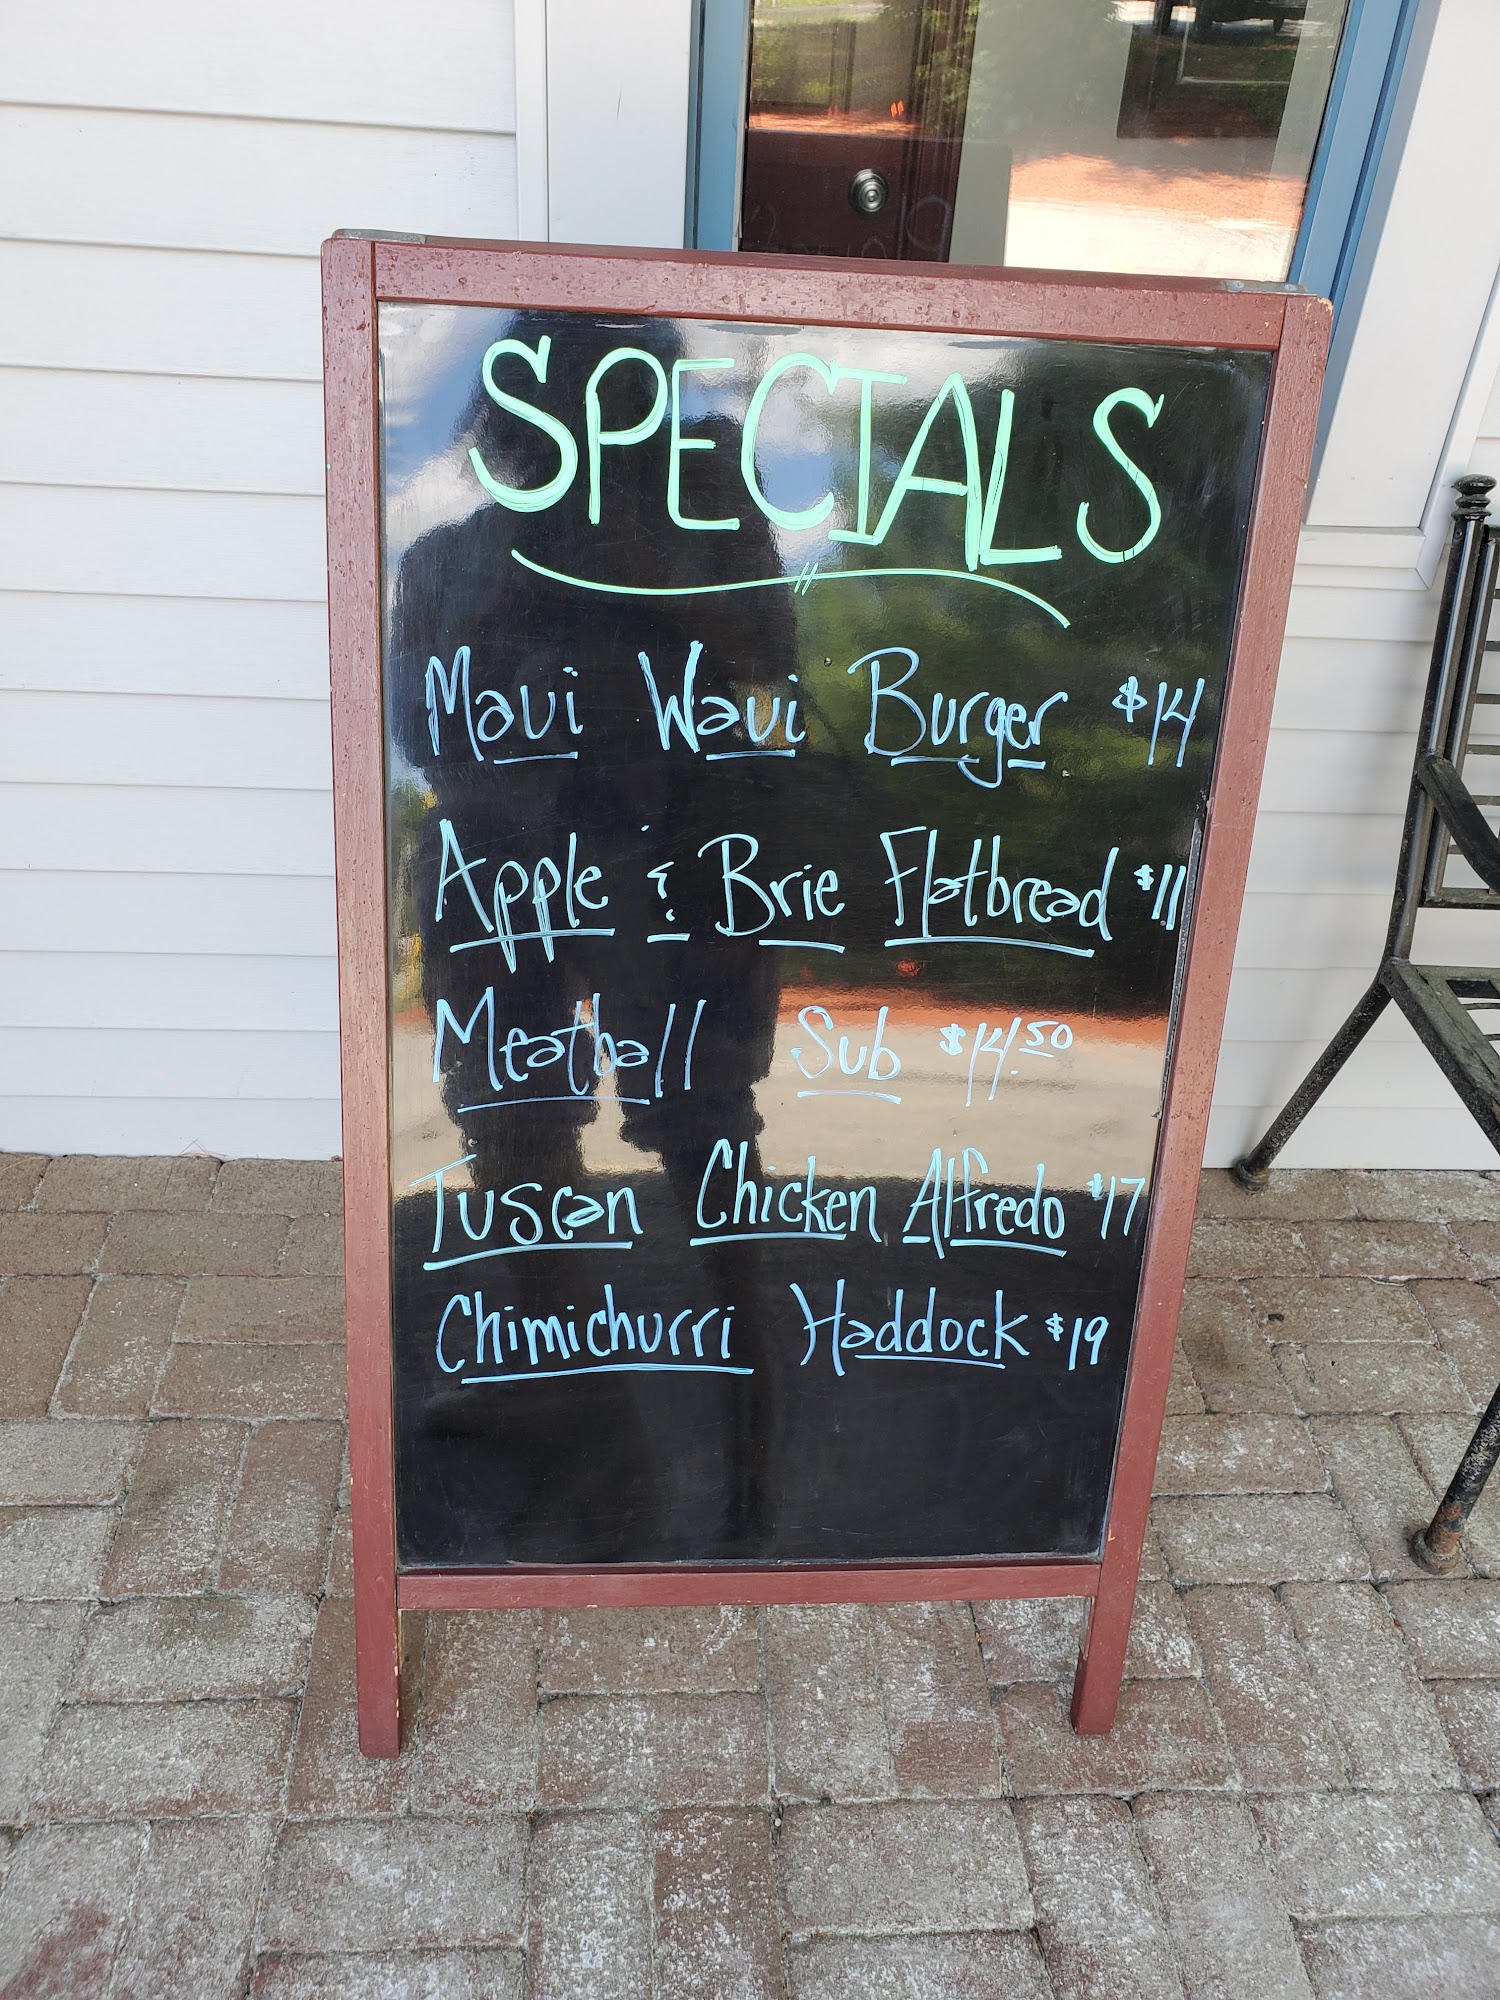 SPECIALS
Maui Waui Burger $14
Apple & Brie Flatbread $11
Meatball Sub $14.50
Tuscan Chicken Alfredo $17
Chimichurri Haddock $19